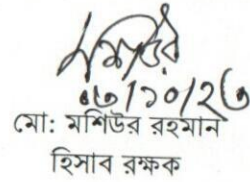 মশিউর
০৩/১০/২৩
মো: মশিউর রহমান
হিসাব রক্ষক